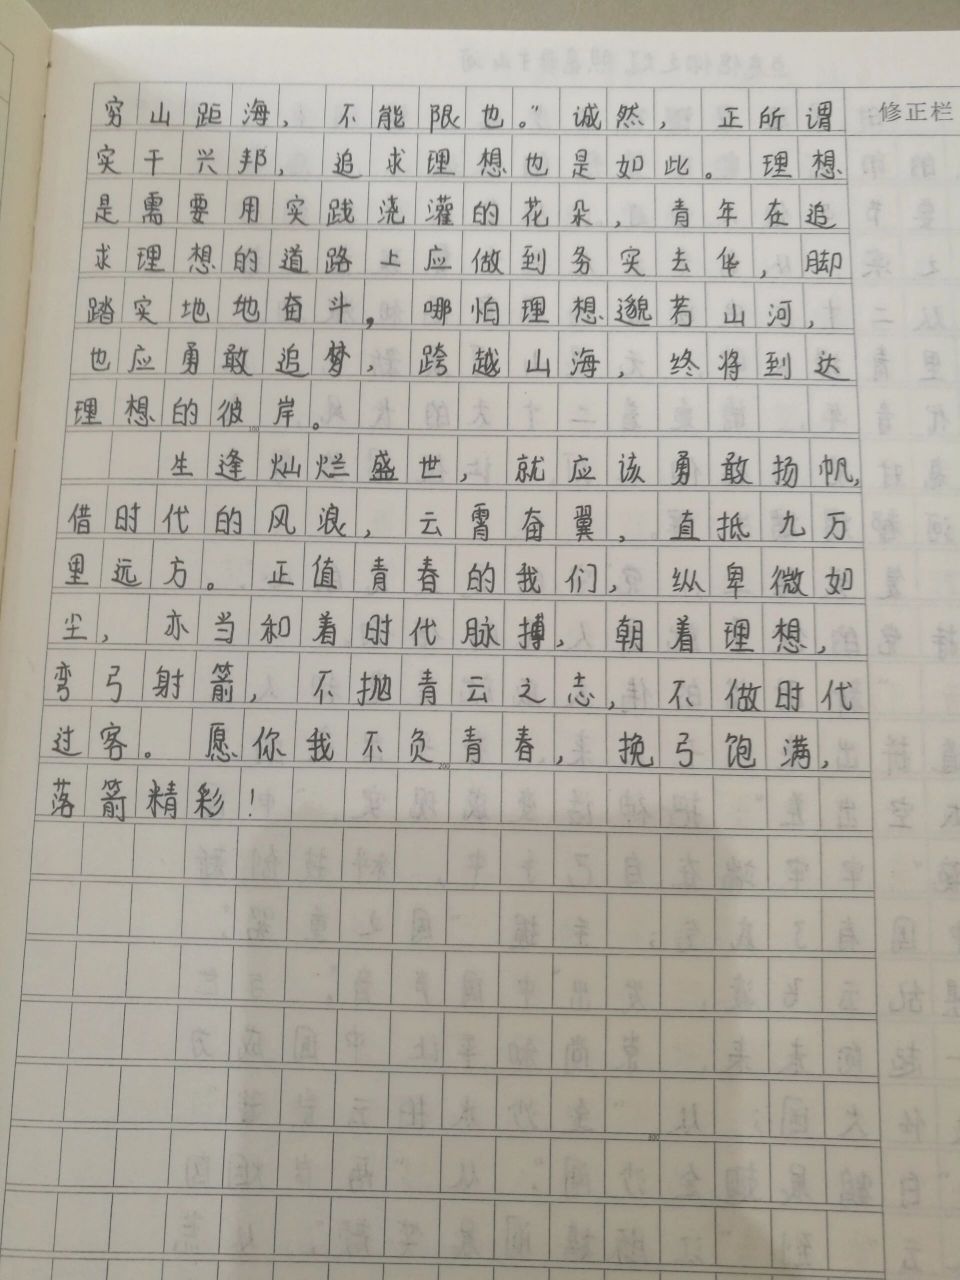 穷山距海，不能限也。”诚然，正所谓
修正栏
实干兴邦，追求理想也是如此。理想
是需要用实践浇灌的花朵，青年在追
求理想的道路上应做到务实去华，脚
踏实地地奋斗，哪怕理想邈若山河，
也应勇敢追梦，跨越山海，终将到达
理想的彼岸。
100
生逢灿烂盛世，就应该勇敢扬帆，
借时代的风浪，云霄奋翼，直抵九万
里远方。正值青春的我们，纵卑微如
尘，亦当和着时代脉搏，朝着理想，
弯弓射箭，不抛青云之志，不做时代
过客。愿你我不负青春，挽弓饱满，
200
落箭精彩！
300